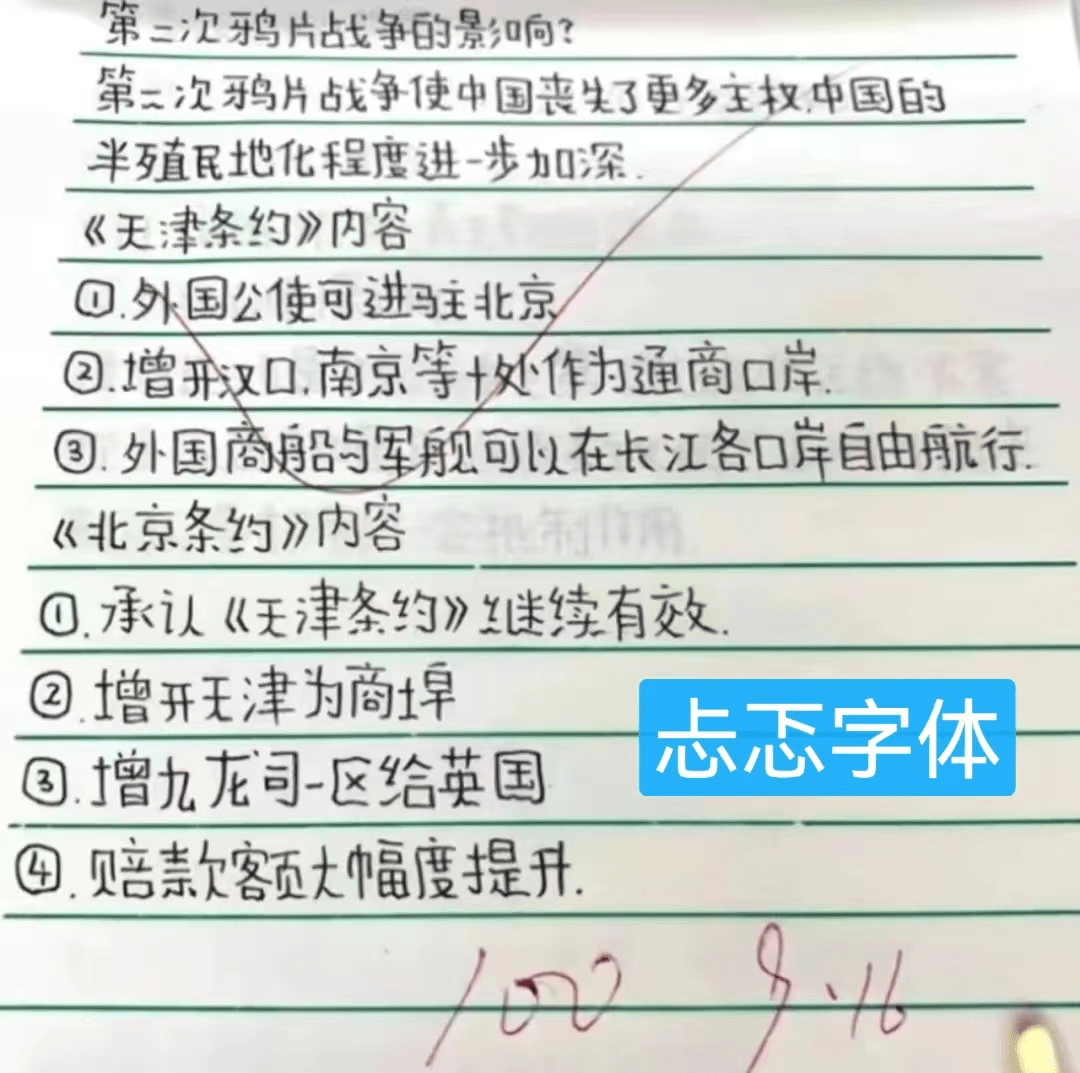 第二次鸦片战争的影响?
第二次鸦片战争使中国丧失了更多主权.中国的
半殖民地化程度进一步加深.
《天津条约》内容
①.外国公使可进驻北京
②.增开汉口.南京等十处作为通商口岸.
③.外国商船与军舰可以在长江各口岸自由航行.
《北京条约》内容
①.承认《天津条约》继续有效.
②.增开天津为商埠
③.增九龙司一区给英国
④.赔款额大幅度提升.
忐忑字体
100 9.16